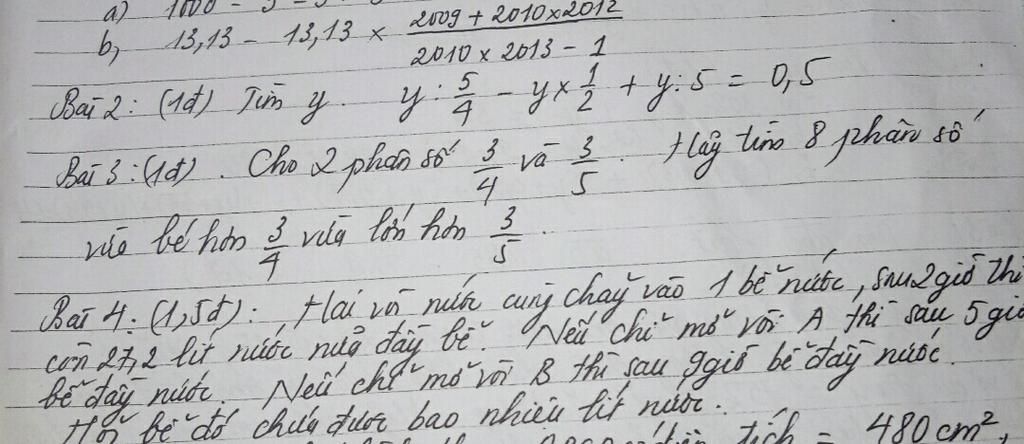 a) 1000 -
b, 13,13 - 13,13 × \frac{2009 + 2010 × 2012}{2010 × 2013 - 1}
Bài 2: (1đ) Tìm y. y : \frac{5}{4} - y × \frac{1}{2} + y : 5 = 0,5
Bài 3: (1đ). Cho 2 phân số \frac{3}{4} và \frac{3}{5}. Hãy tìm 8 phân số
vừa bé hơn \frac{3}{4} vừa lớn hơn \frac{3}{5}.
Bài 4: (1,5đ): Hai vòi nước cùng chảy vào 1 bể nước, sau 2 giờ thì
còn 27,2 lít nước nữa đầy bể. Nếu chỉ mở vòi A thì sau 5 giờ
bể đầy nước. Nếu chỉ mở vòi B thì sau 9 giờ bể đầy nước.
Hỏi bể đó chứa được bao nhiêu lít nước.
diện tích = 480 cm²,